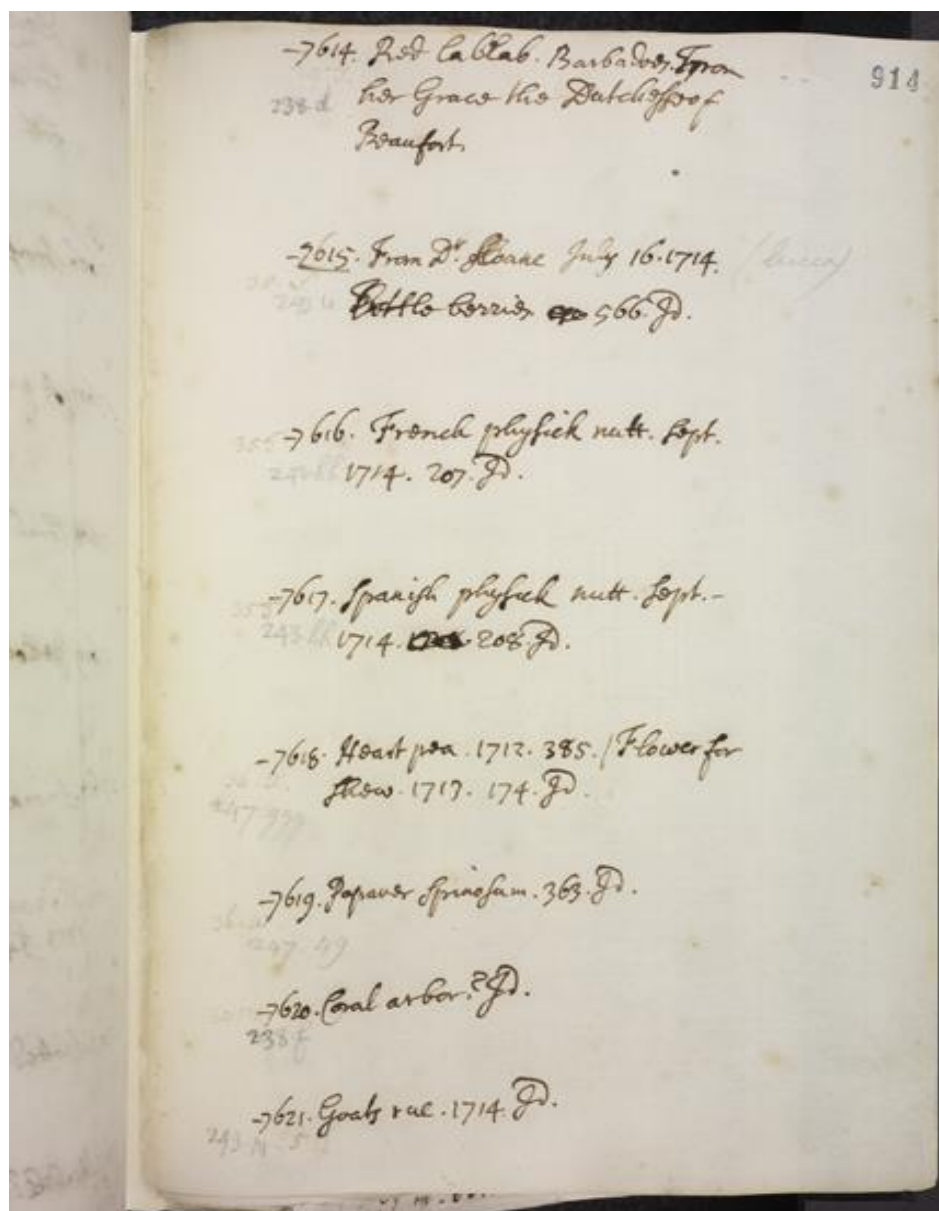 914
-7614. Red lablab. Barbados. From
238 d her Grace the Dutchesse of
Beaufort.
-7615. From Dr. Sloane July 16. 1714.
Bottle berries 566. Id.
-7616. French physick nutt. Sept.
1714. 207. Id.
-7617. Spanish physick nutt. Sept. -
1714. 208. Id.
-7618. Heart pea. 1712. 385. / Flower for
shew. 1713. 174. Id.
-7619. Papaver Spinosum. 363. Id.
247. 49
-7620. Coral arbor.? Id.
238 f
-7621. Goats rue. 1714. Id.